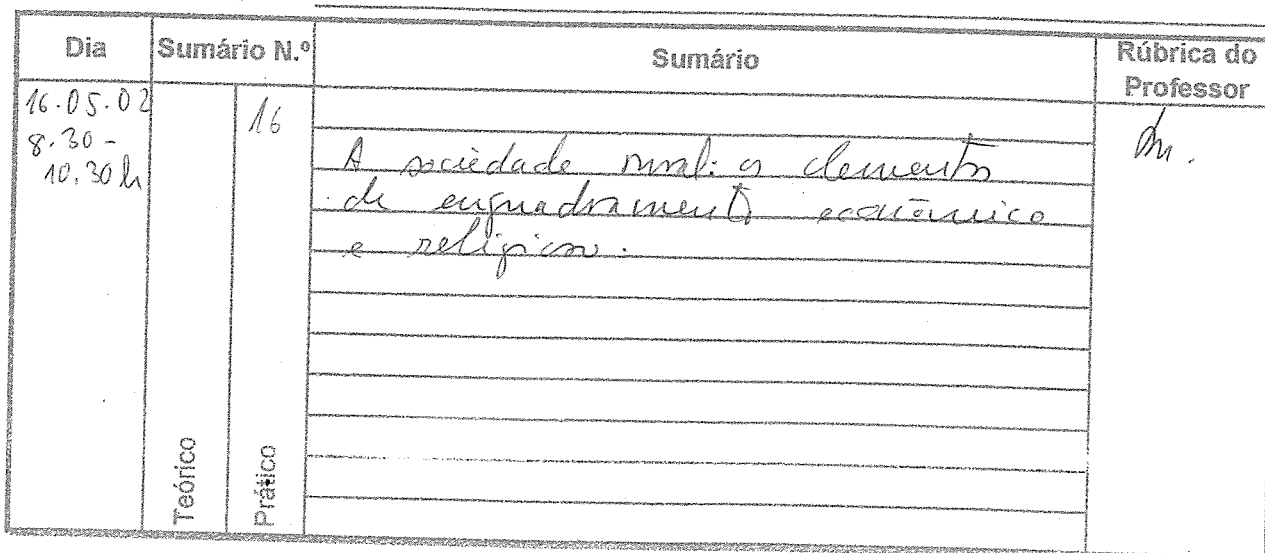 Dia Sumário N.º Sumário Rúbrica do Professor
16.05.02
8.30 -
10.30h
16
A sociedade rural: os elementos
de enquadramento económico
e religioso.
Teórico
Prático